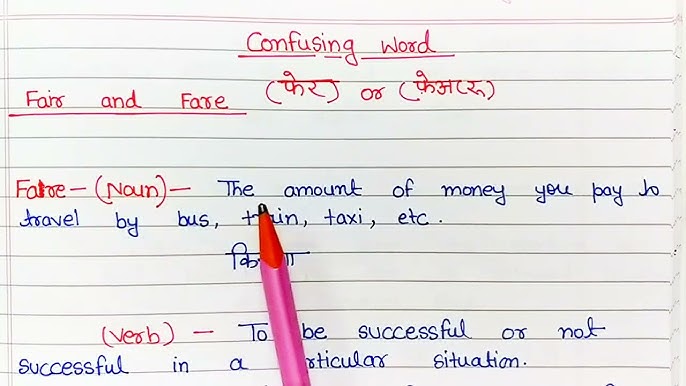 Confusing Word
Fair and Fare (फेर) or (फ़ेअर)
Fare - (Noun) - The amount of money you pay to
travel by bus, train, taxi, etc.
(Verb) - To be successful or not
successful in a particular situation.